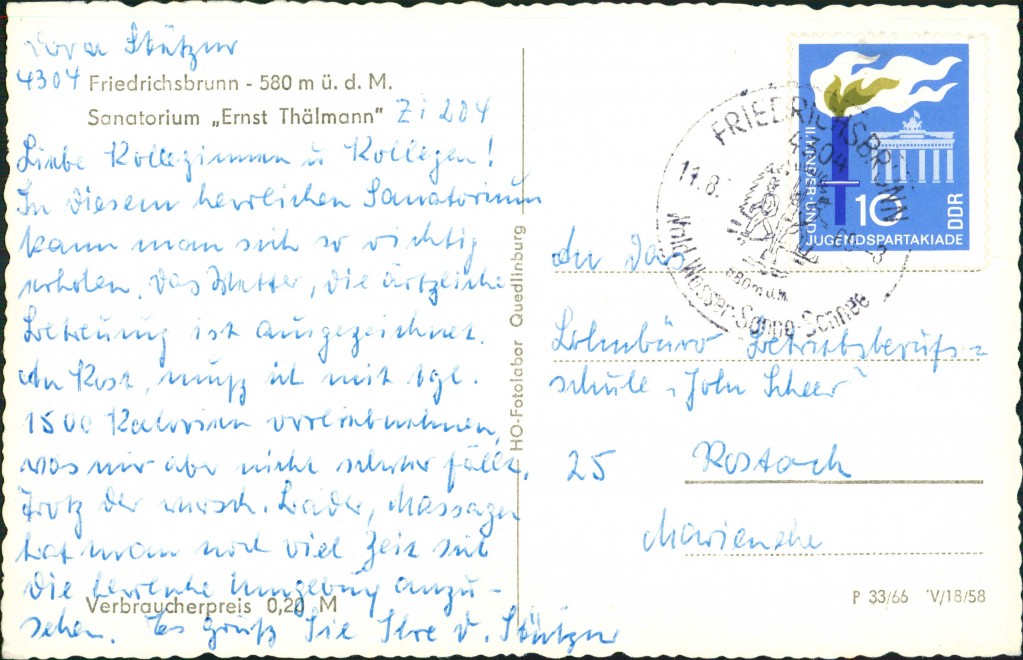 Dora Stützner
4304 Friedrichsbrunn - 580 m ü. d. M.
Sanatorium „Ernst Thälmann" Zi 204
Liebe Kolleginnen u Kollegen!
In diesem herrlichen Sanatorium
kann man sich so richtig
erholen. Das Wetter, die ärtzliche
Betreuung ist ausgezeichnet.
An Kost, muß ich mit tgl.
1500 Kalorien vorliebnehmen,
was mir aber nicht schwer fällt.
Trotz der versch. Bäder, Massagen
hat man noch viel Zeit sich
die herrliche Umgebung anzu-
Verbraucherpreis 0,20 M
sehen. Es grüßt Sie Ihre D. Stützner
HO-Fotolabor Quedlinburg
II. KINDER-UND
JUGENDSPARTAKIADE
10
DDR
FRIEDRICHSBRUNN
4304
11.8.
580m ü.d.M.
Wald-Wasser-Sonne-Schnee
An das
Lohnbüro Betriebsberufs=
schule „John Scheer"
25 Rostock
Marienehe
P 33/66 V/18/58